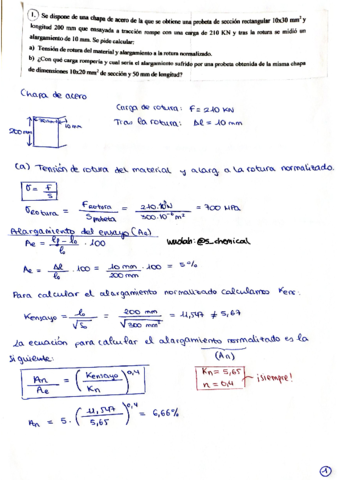 1. Se dispone de una chapa de acero de la que se obtiene una probeta de sección rectangular 10x30 mm² y
longitud 200 mm que ensayada a tracción rompe con una carga de 210 KN y tras la rotura se midió un
alargamiento de 10 mm. Se pide calcular:
a) Tensión de rotura del material y alargamiento a la rotura normalizado.
b) ¿Con qué carga rompería y cual sería el alargamiento sufrido por una probeta obtenida de la misma chapa
de dimensiones 10x20 mm² de sección y 50 mm de longitud?
Chapa de acero
Carga de rotura: F = 210 KN
Tras la rotura: Δl = 10 mm
30mm 10mm
200 mm
(a) Tensión de rotura del material y alarg. a la rotura normalizado.
σ = F/S
σrotura = Frotura/Sprobeta = 210·10³N/300·10⁻⁶m² = 700 MPa
Alargamiento del ensayo (Ae)
wuolah: @s_chemical
Ae = lf - l0/l0 · 100
Ae = Δl/l0 · 100 = 10 mm/200 mm · 100 = 5%
Para calcular el alargamiento normalizado calculamos Kens:
Kensayo = l0/√S0 = 200 mm/√300 mm² = 11,547 ≠ 5,67
La ecuación para calcular el alargamiento normalizado es la
siguiente: (An)
An/Ae = (Kensayo/Kn)^0,4
Kn = 5,65
n = 0,4
¡siempre!
An = 5 · (11,547/5,65)^0,4 = 6,66%
1